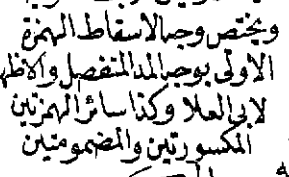 ويختص وجه الاسقاط الهمزة
الاولى بوجه المد المنفصل والاظهر
لابى العلا وكذا سائر الهمزتين
المكسورتين والمضمومتين